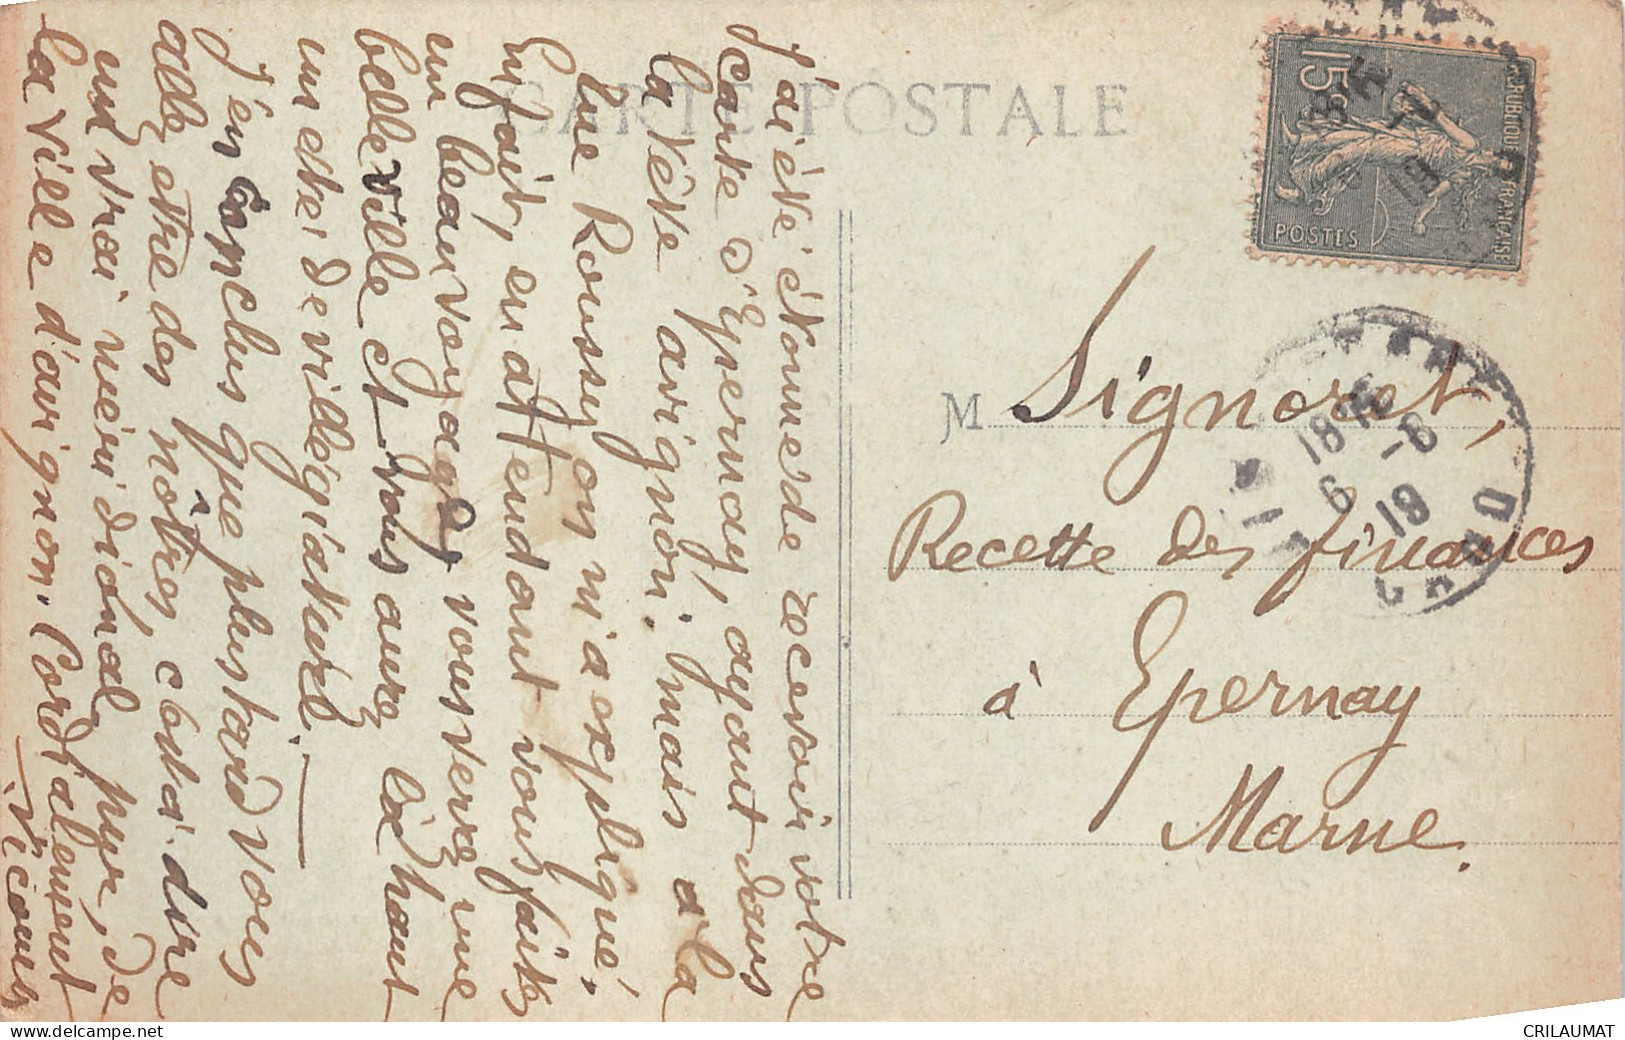 CARTE POSTALE
J'ai été étonné de recevoir votre
carte d'Epernay, ayant dans
la tête avignon. mais a la
lue Roussy on m'a expliqué.
En fait, en attendant vous faites
un beau voyage vous verrez une
belle ville et vous aurez là haut
un été de villégiature.
J'en conclus que plus tard vous
allez être des nôtres, c'est à dire
un vrai méridional pur, de
la ville d'avignon. Cordialement
15c
POSTES
REPUBLIQUE FRANÇAISE
M Signoret,
Recette des finances
à Epernay
Marne.
EPERNAY
18
6 -8
19
MARNE
www.delcampe.net
CRILAUMAT